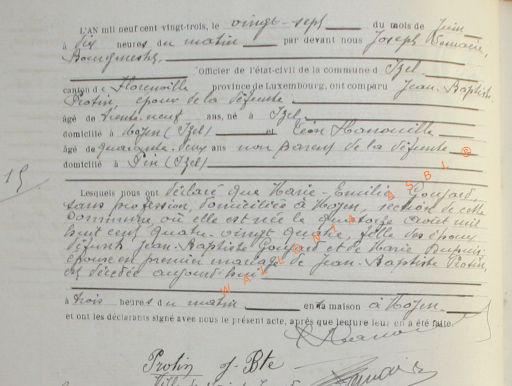 L'AN mil neuf cent vingt-trois, le vingt-sept du mois de Juin
à dix heures du matin par devant nous Joseph
Bourgmestre,
Officier de l'état-civil de la commune d'Izel
canton de Florenville province de Luxembourg, ont comparu Jean-Baptiste
Protin, époux de la défunte
âgé de trente-neuf ans, né à Izel
domicilié à Moyen (Izel) et Léon Hanouille
âgé de quarante-deux ans non parent de la défunte
domicilié à Pin (Izel)
15
Lesquels nous ont déclaré que Marie-Emilie Poupard,
sans profession, domiciliée à Moyen, section de cette
commune, où elle est née le quatorze août mil
huit cent quatre-vingt quatre, fille des époux
défunts Jean-Baptiste Poupard et de Marie
épouse en premier mariage de Jean-Baptiste Protin,
est décédée aujourd'hui
à trois heures du matin en sa maison à Moyen
et ont les déclarants signé avec nous le présent acte, après que lecture leur en a été faite.
Protin J-Bte
WALLONIA ASBL ®